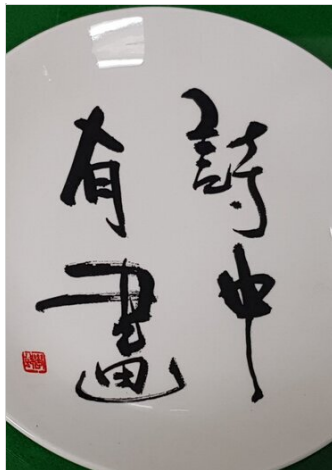 詩中
有畫